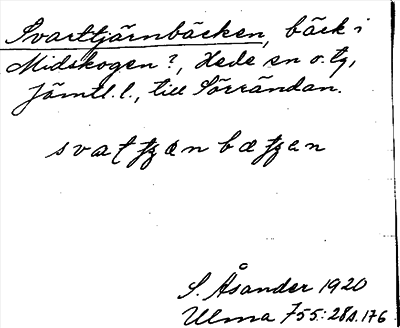 Svarttjärnbäcken, bäck i
Midskogen?, Hede sn o. tg,
Jämtl. l., till Sörrändan.
S. Åsander 1920
Ulma 755: 28 s. 176